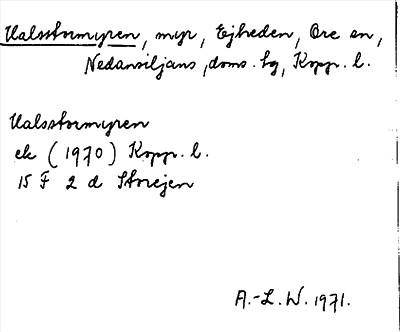 Valsstormyren, myr, Ejheden, Ore sn,
Nedansiljans, doms. tg, Kopp. l.
Valsstormyren
ek (1970) Kopp. l.
15 F 2 d Storejen
A.-L. W. 1971.